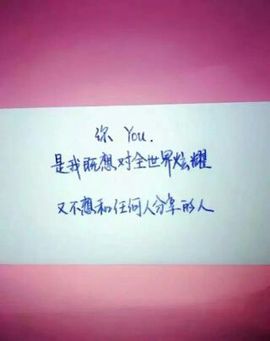 你 You.
是我既想对全世界炫耀
又不想和任何人分享的人